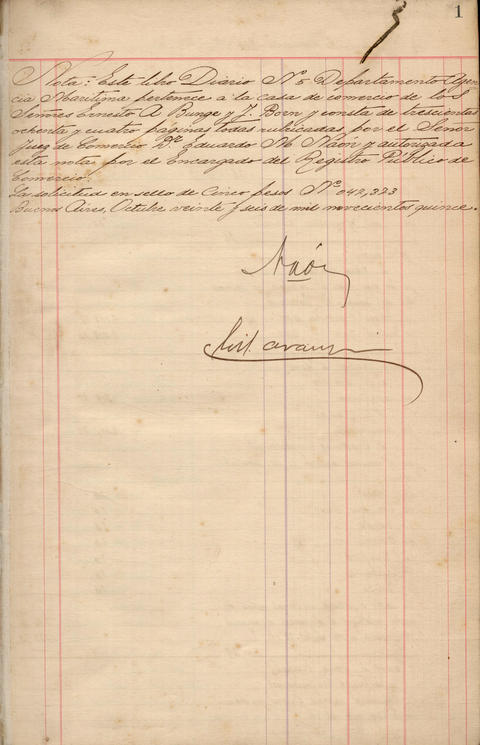 1
Nota: Este libro Diario Nº 5 Departamento Agen
cia Maritima pertenece a la casa de comercio de los
Señores Ernesto A Bunge y J. Born y consta de trescientas
ochenta y cuatro paginas todas rubricadas por el Señor
Juez de Comercio Dr. Eduardo M. Naón y autorizada
esta nota por el Encargado del Registro Público de
Comercio.
La solicitud en sello de Cinco pesos Nº 042,323
Buenos Aires, Octubre veinte y seis de mil novecientos quince.
Naón